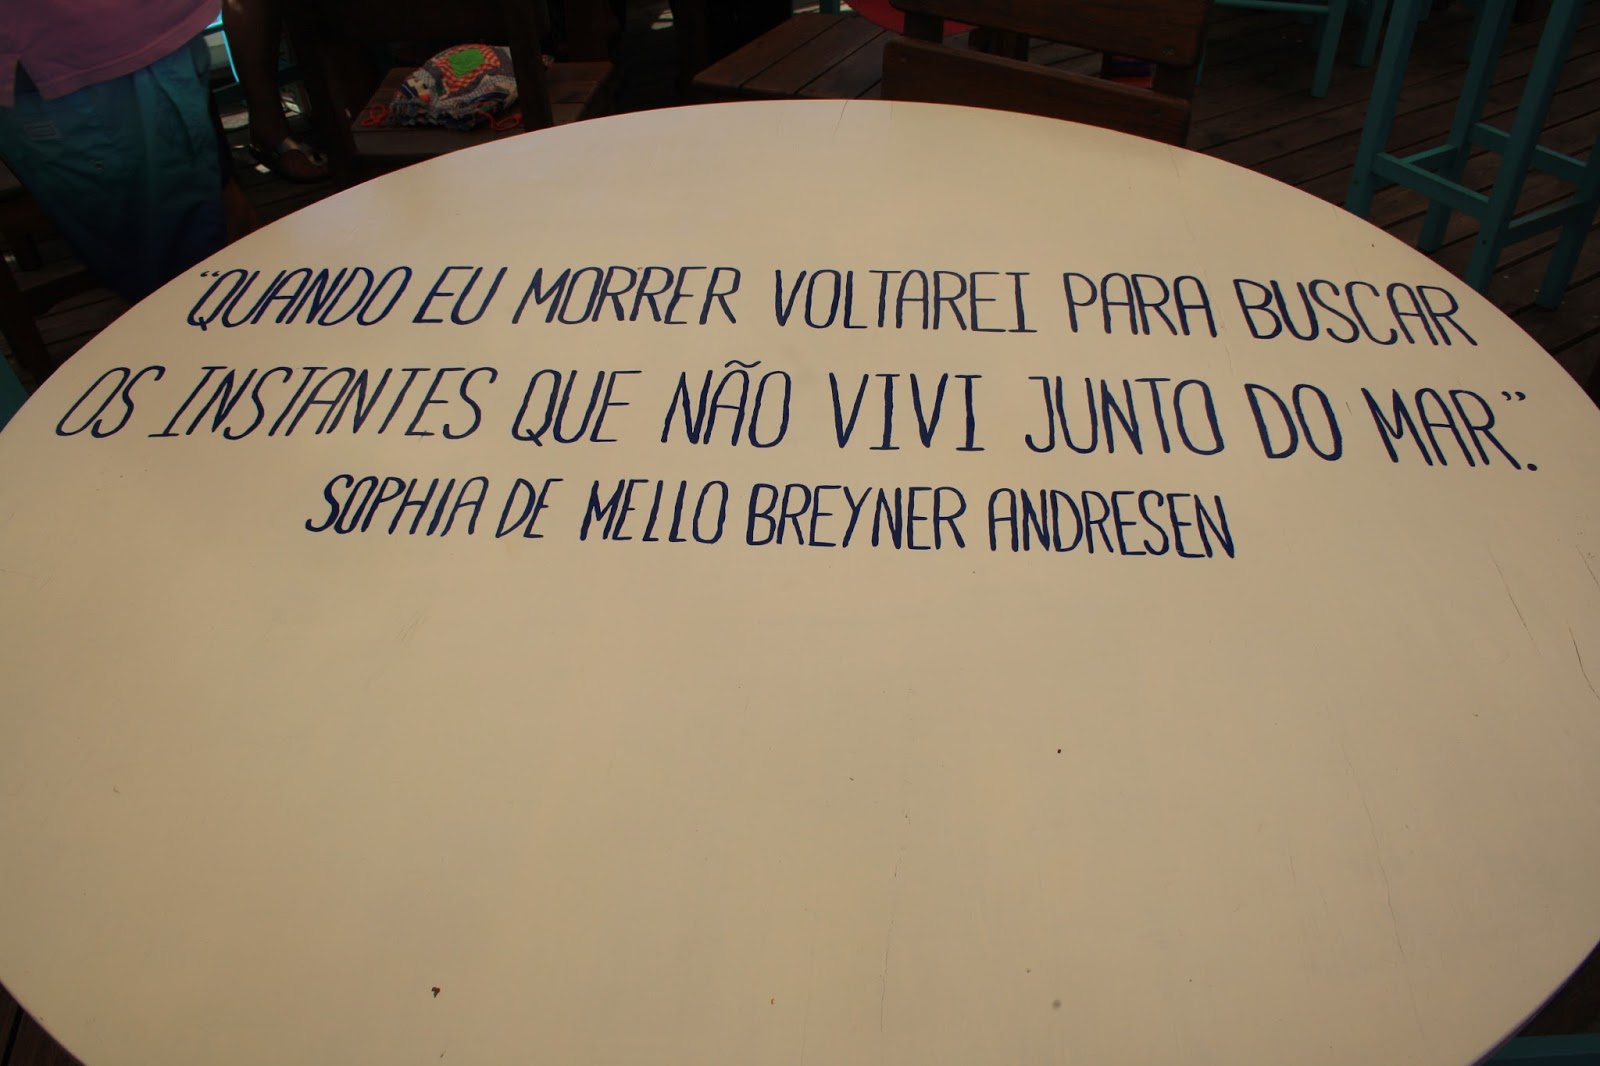 “QUANDO EU MORRER VOLTAREI PARA BUSCAR
OS INSTANTES QUE NÃO VIVI JUNTO DO MAR”.
SOPHIA DE MELLO BREYNER ANDRESEN